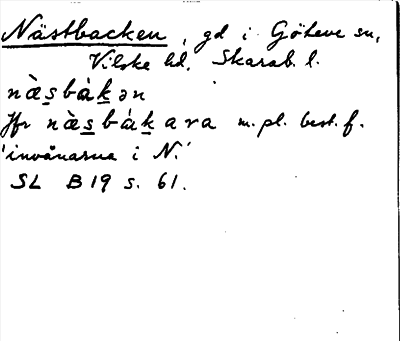 Nästbacken, gd i Göteve sn,
Vilske hd, Skarab. l.
næ̀s̲bàk̲ən
Jfr næ̀s̲bák̲ara m. pl. best. f.
'invånarna i N.'
SL B19 s. 61.